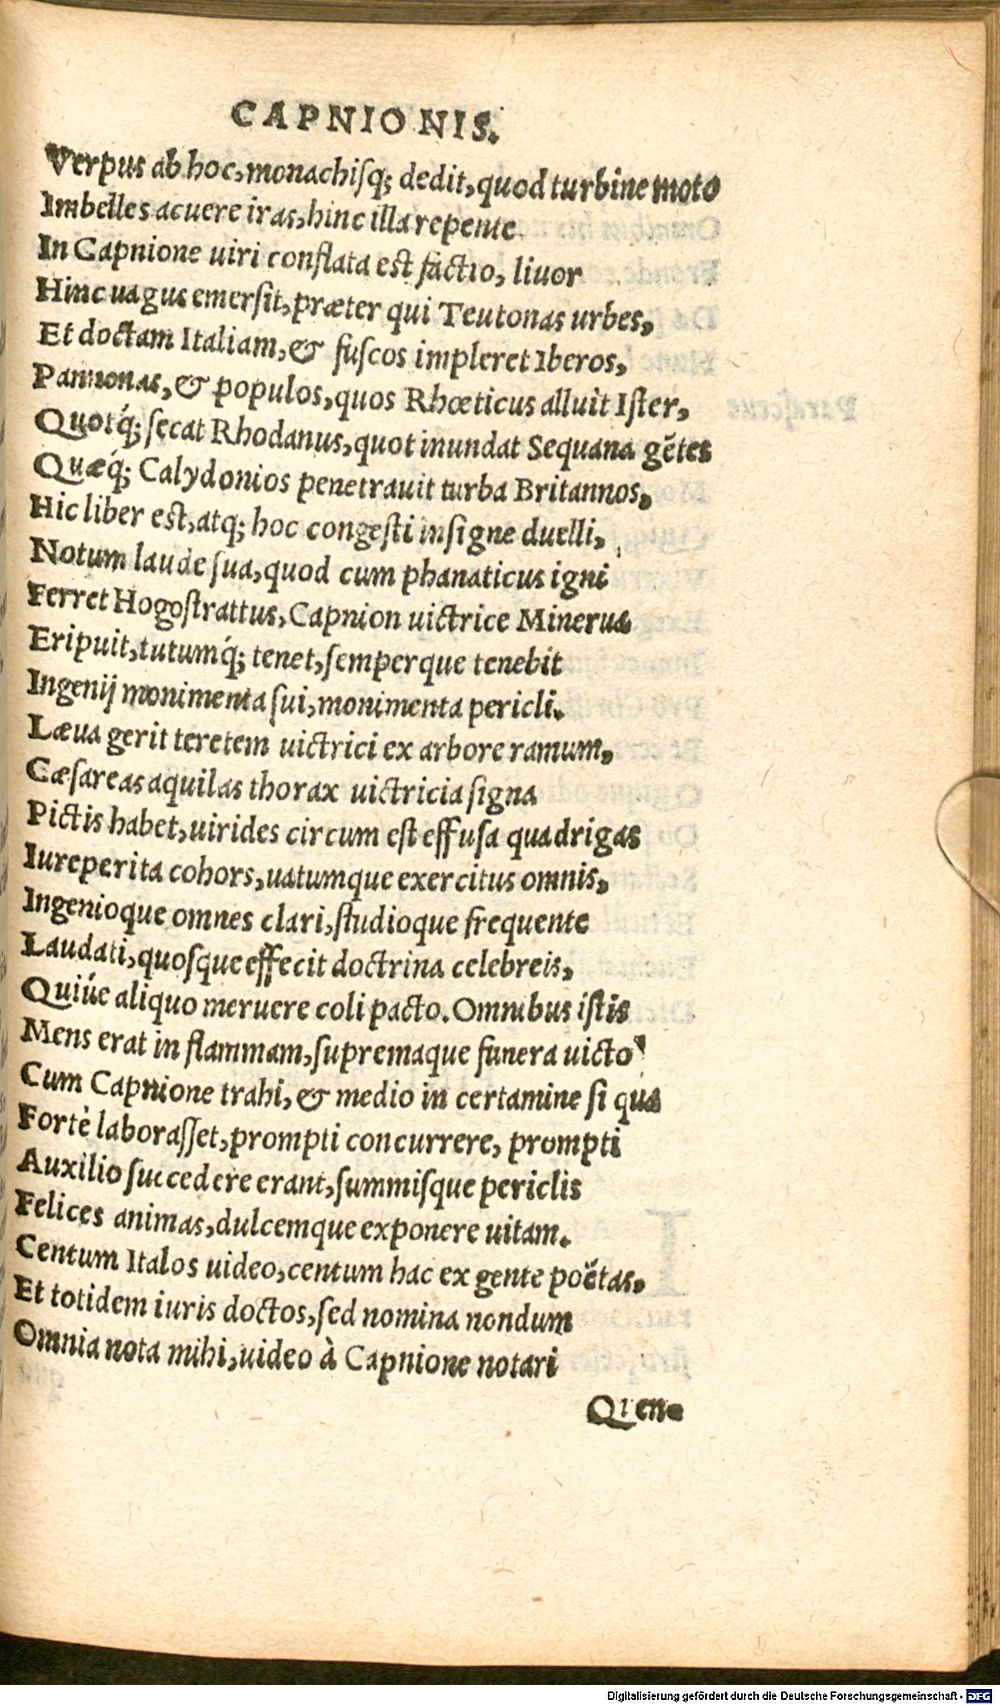 CAPNIONIS.
Verpus ab hoc, monachisq; dedit, quod turbine moto
Imbelles acuere iras, hinc illa repente
In Capnione uiri conflata est factio, liuor
Hinc uagus emersit, præter qui Teutonas urbes,
Et doctam Italiam, & fuscos impleret Iberos,
Pannonas, & populos, quos Rhœticus alluit Ister,
Quotq́; secat Rhodanus, quot inundat Sequana gẽtes
Quæq́; Calydonios penetrauit turba Britannos,
Hic liber est, atq; hoc congesti insigne duelli,
Notum laude sua, quod cum phanaticus igni
Ferret Hogostrattus, Capnion uictrice Minerua
Eripuit, tutumq́; tenet, semperque tenebit
Ingenij monimenta sui, monimenta pericli.
Læua gerit teretem uictrici ex arbore ramum,
Cæsareas aquilas thorax uictricia signa
Pictis habet, uirides circum est effusa quadrigas
Iureperita cohors, uatumque exercitus omnis,
Ingenioque omnes clari, studioque frequente
Laudati, quosque effecit doctrina celebreis,
Quiúe aliquo meruere coli pacto. Omnibus istis
Mens erat in flammam, supremaque funera uicto
Cum Capnione trahi, & medio in certamine si qua
Fortè laborasset, prompti concurrere, prompti
Auxilio succedere erant, summisque periclis
Felices animas, dulcemque exponere uitam.
Centum Italos uideo, centum hac ex gente poëtas,
Et totidem iuris doctos, sed nomina nondum
Omnia nota mihi, uideo à Capnione notari
Quen-
Digitalisierung gefördert durch die Deutsche Forschungsgemeinschaft - DFG